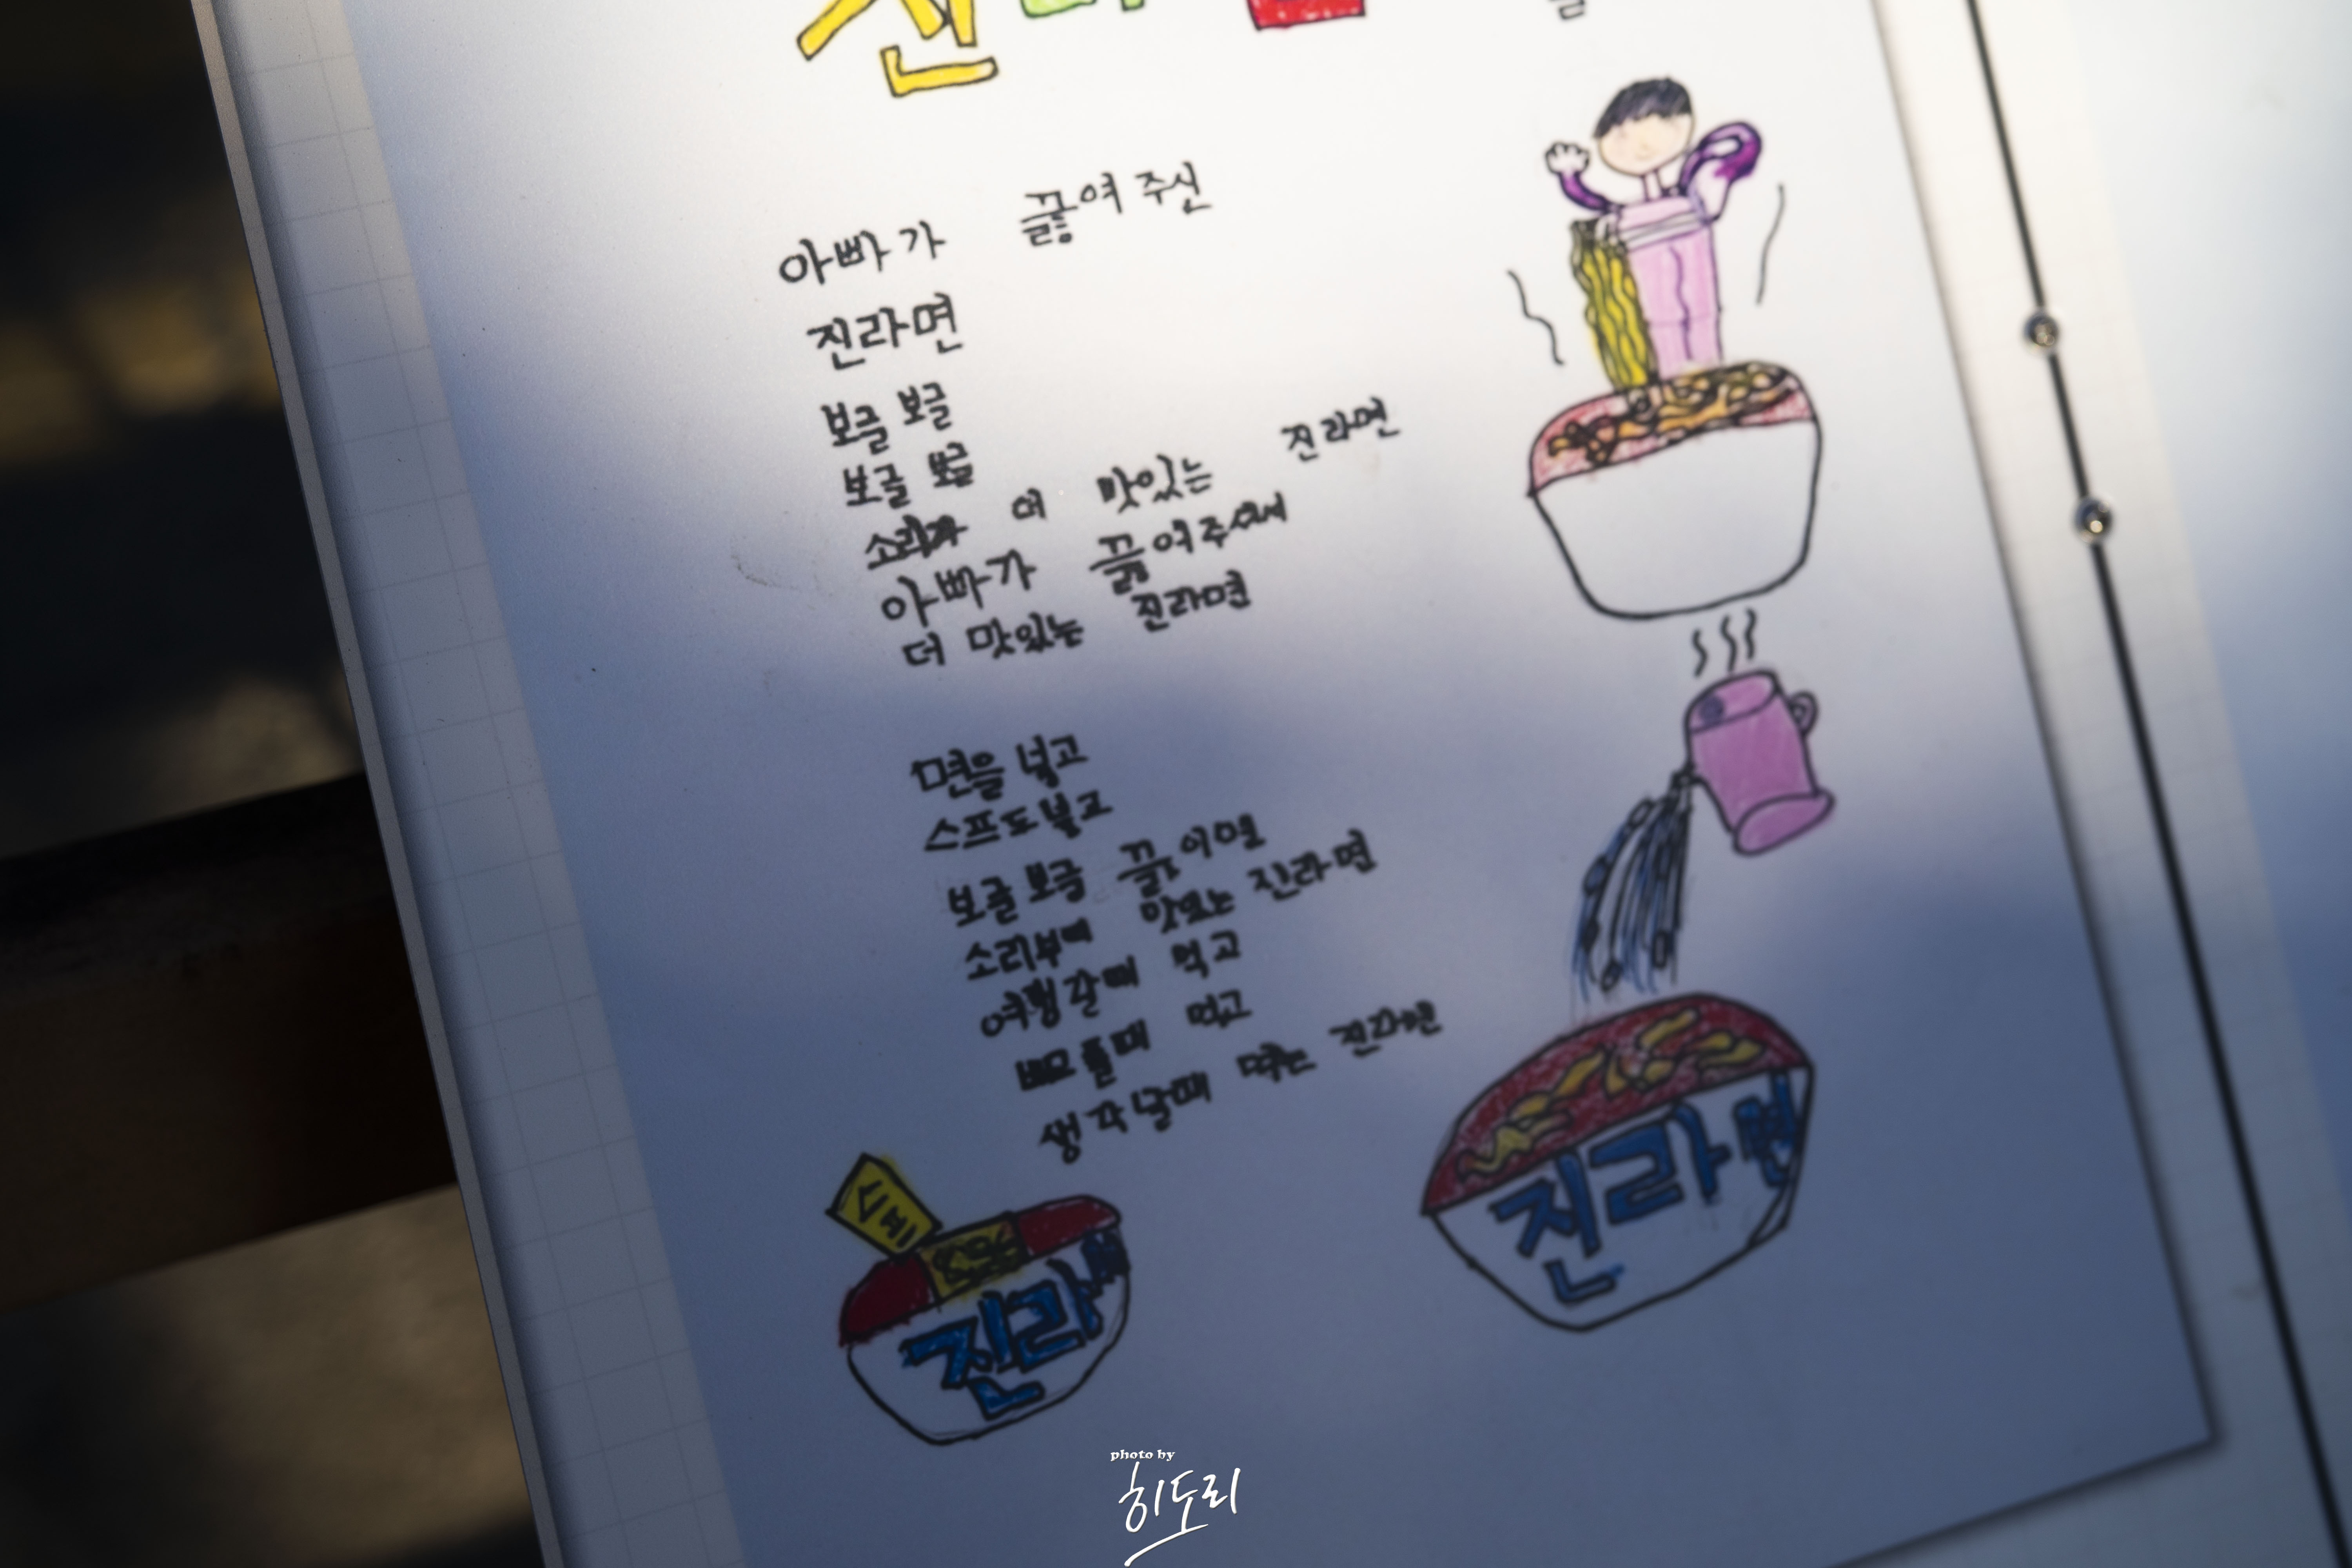 진라면
아빠가 끓여 주신
진라면
보글 보글
보글 보글
소리가 더 맛있는 진라면
아빠가 끓여주셔서
더 맛있는 진라면
면을 넣고
스프도 넣고
보글 보글 끓이면
소리부터 맛있는 진라면
여행갈때 먹고
배고플때 먹고
생각날때 먹는 진라면
스프
진라면
진라면
photo by
히도리